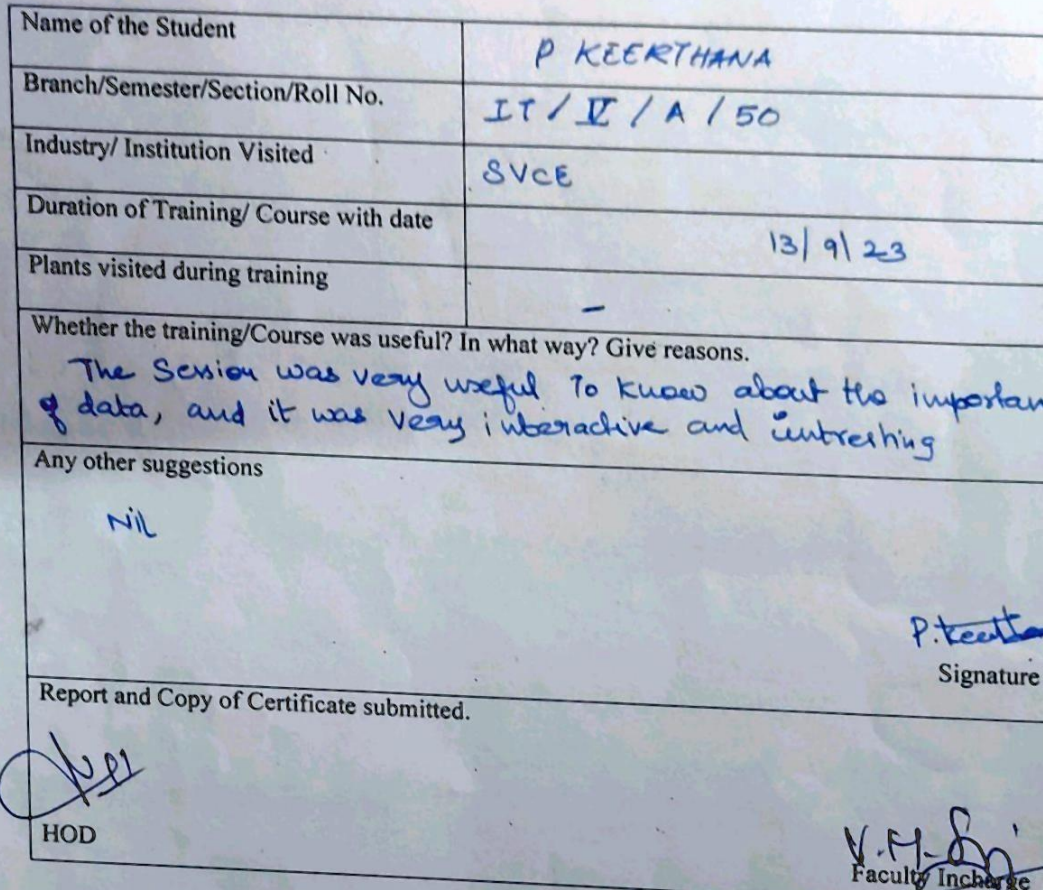 Name of the Student
P KEERTHANA
Branch/Semester/Section/Roll No.
IT / V / A / 50
Industry/ Institution Visited
SVCE
Duration of Training/ Course with date
13/ 9/ 23
Plants visited during training
-
Whether the training/Course was useful? In what way? Give reasons.
The Session was very useful To know about the importan
of data, and it was very interactive and intresting
Any other suggestions
Nil
P.Keertha
Signature
Report and Copy of Certificate submitted.
HOD
Faculty Incharge